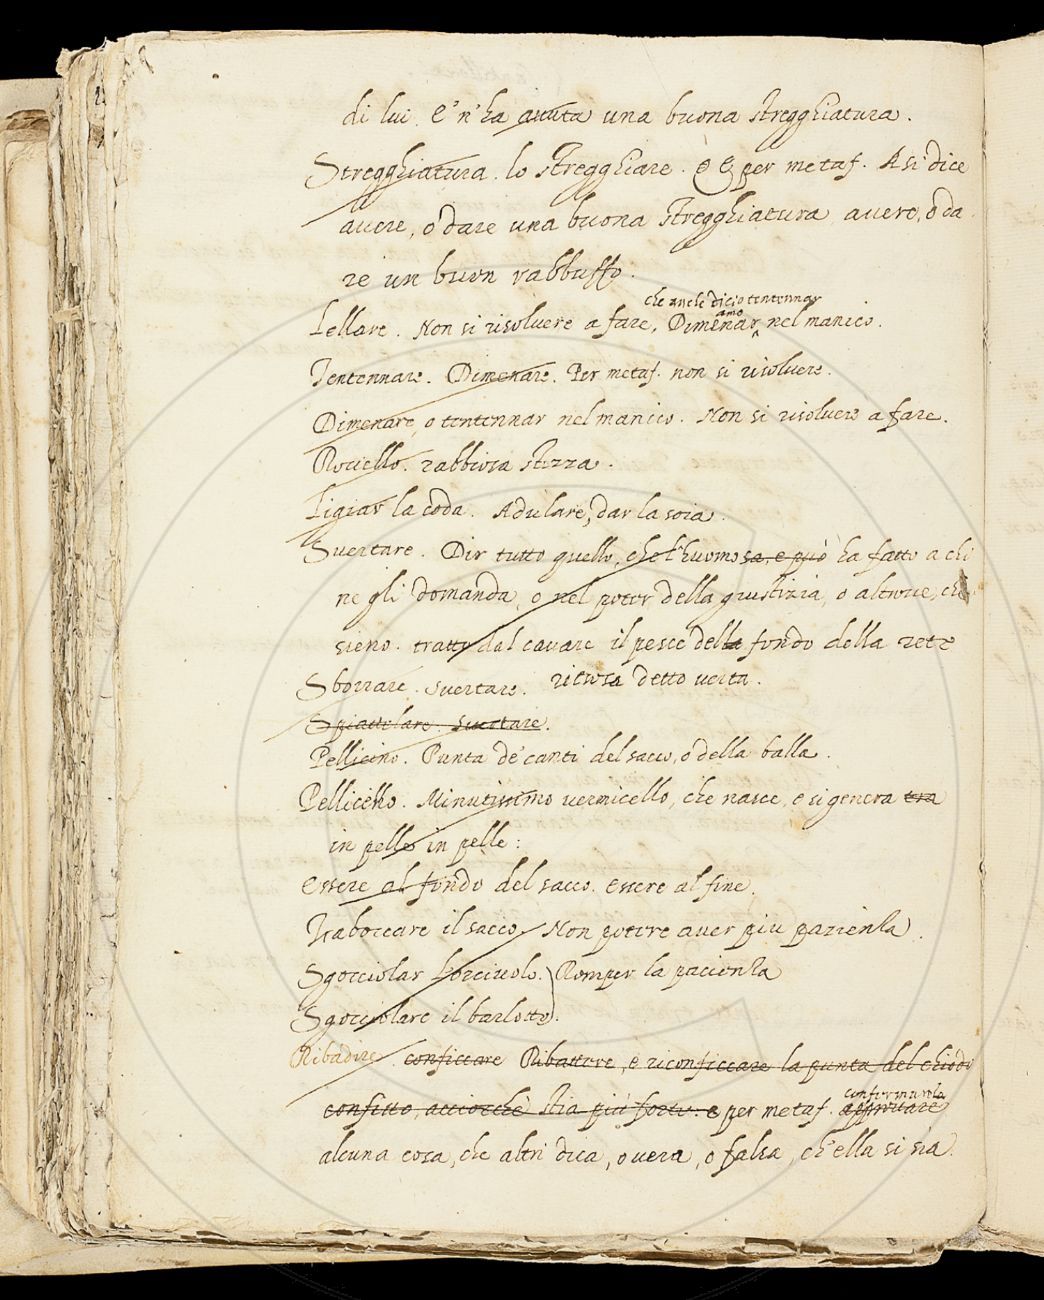 di lui. E' n'ha auuta una buona stregghiatura.
Stregghiatura. lo stregghiare. e per metaf. A si dice
auere, o dare una buona stregghiatura auere, o da
re un buon rabbuffo.
che anche diciamo tentennar
Lellare. Non si risoluere a fare, Dimenar nel manico.
Tentennare. Dimenare. Per metaf. non si risoluere.
Dimenare, o tentennar nel manico. Non si risoluere a fare.
Rouello. rabbiosa stizza.
Ligiar la coda. Adulare, dar la soia.
Suertare. Dir tutto quello, che l'huomo sa, e può ha fatto a chi
ne gli domanda, o nel poter della giustizia, o altroue, che
sieno. tratto dal cauare il pesce della fondo della rete
ritrosa detto uerta.
Sborrare. suertare.
Spiattellare. suertare.
Pellicino. Punta de' canti del sacco, o della balla.
Pellicello. Minutissimo uermicello, che nasce, e si genera tra
in pelle in pelle:
Essere al fondo del sacco. essere al fine.
Traboccare il sacco. Non potere auer piu pazienza.
Sgocciolar l'orciuolo. Romper la pacienza
Sgocciolare il barlotto.
Ribadire. conficcare Ribattere, e riconficcare la punta del chiodo
confitto, acciocchè stia più forte. e per metaf. confermarla
alcuna cosa, che altri dica, o uera, o falsa, ch'ella si sia.